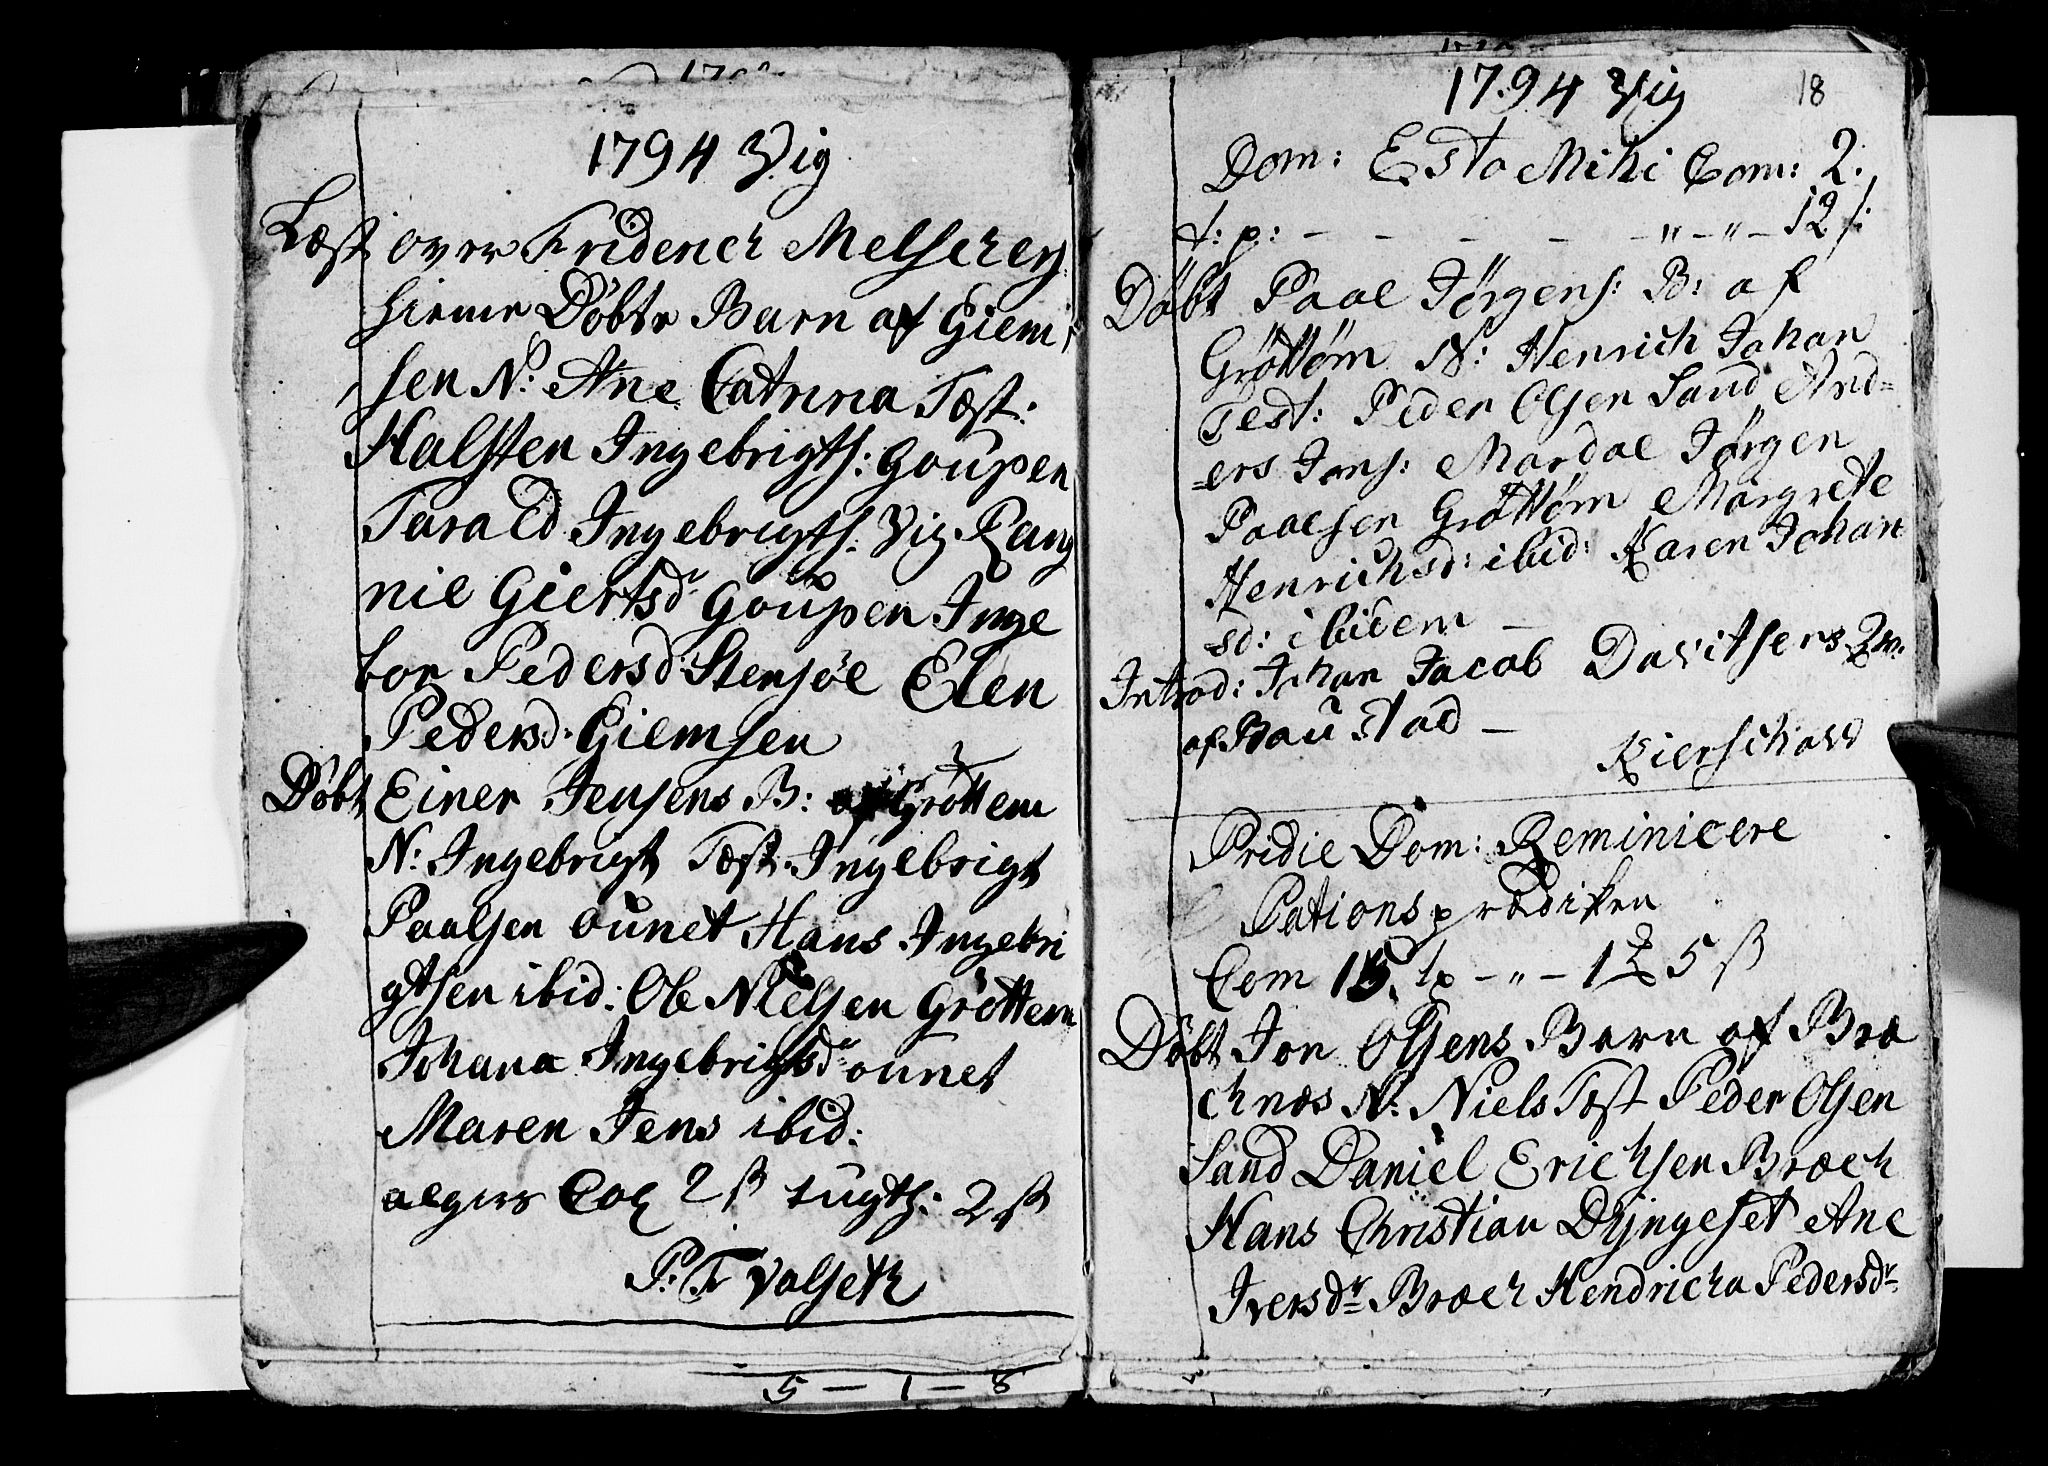 1794 Vig
Læst over Friderich Melscher
hieme Døbte Barn af Giem
sen N: Ane Catrina Test:
Halsten Ingebrigts: Goupen
Tarald Ingebrigts: Vig Rang
nil Giertsdr Goupen Inge
bor Pedersd: Stensøe Elen
Pedersd: Giemsen
Døbt Einer Jensens B: af Grøttem
N: Ingebrigt Test: Ingebrigt
Paalsen ounet Hans Ingebri
gtsen ibid: Ole Nielsen Grøttem
Johana Ingebrigtsdr ounet
Maren Jens ibid:
2 ß tugth: 2 ß
P: T Valseth
5 — 1 — 8
1794 Vig 18
Dom: Esto Mihi Com: 2.
t: p: — — — — — „ — „ — 12 ß.
Døbt Paal Jørgens: B: af
Grøttøm N: Henrich Johan
Test: Peder Olsen Sand And=
=ers Jons: Mardal Jørgen
Paalsen Grøttøm Margrete
Henrichsd: ibid: Karen Johan
sd: ibidem —
Introd: Johan Jacob Davitsens Qv.
af Baustad —
Kierschow
Pridie Dom: Reminicere
Pationsprædiken
Com 15. tp — „ — 1 ℥ 5 ß
Døbt Jon Olsens Barn af Bra
chnæs N: Niels Test Peder Olsen
Sand Daniel Erichsen Bræch
Hans Christian Dÿngeset Ane
Iversdr Bræch Hendricha Pedersdr